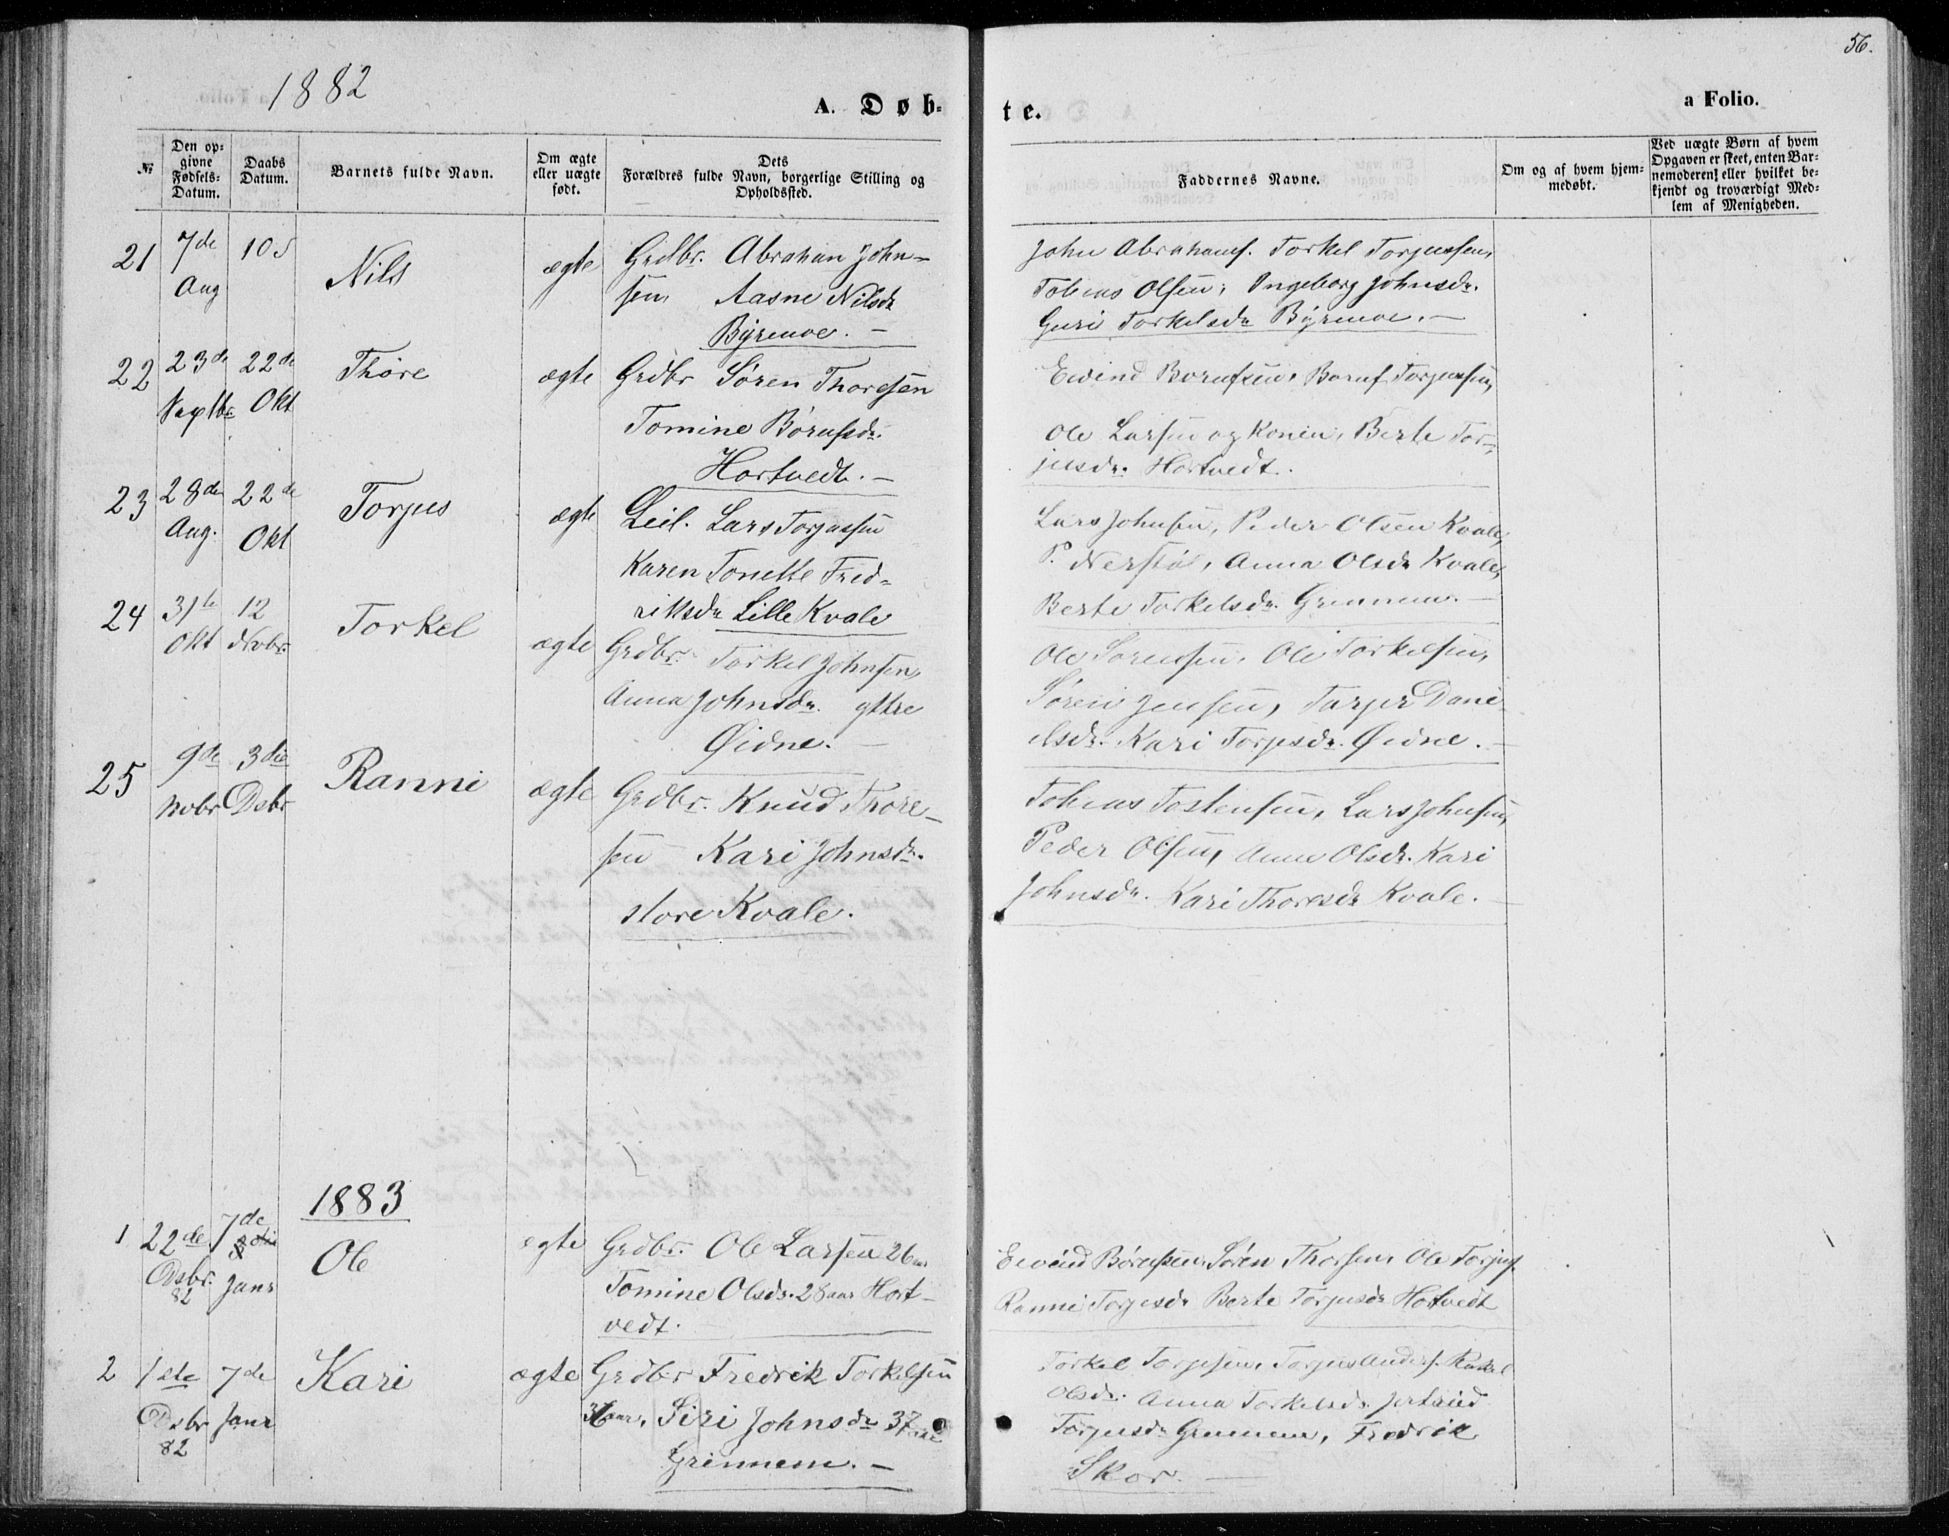 56.
1882
A. Døb-
te.
a Folio.
№
Den op-
givne
Fødsels-
Datum.
Daabs
Datum.
Barnets fulde Navn.
Om ægte
eller uægte
født.
Dets
Forældres fulde Navn, borgerlige Stilling og
Opholdssted.
Faddernes Navne.
Om og af hvem hjem-
medøbt.
Ved uægte Børn af hvem
Opgaven er skeet, enten Bar-
nemoderen eller hvilket be-
kjendt og troværdigt Med-
lem af Menigheden.
21 7de
Aug
Nils
ægte
Grdbr. Abraham John-
sen, Aasne Nilsdr
Byremoe. -
John Abrahams. Torkel Torjussen,
Tobias Olsen, Ingeborg Johnsdr.
Guri Torkelsdr Byremoe. -
22 23de 22de
Septbr Okt
Thore
ægte
Grdbr Søren Thoresen
Tomine Börufsdr.
Hortvedt. -
Eivind Borufsen, Boruf Torjussen,
Ole Larsen og Konen, Berte Tor-
jusdr. Hortvedt.
23 28de 22de
Aug. Okt
Torjus
ægte
Leil. Lars Torjussen
Karen Tonette Fred-
riksdr Lille Kvale
Lars Johnsen, Peder Olsen Kvale,
P. Nerstøl, Anna Olsdr Kvale,
Berte Torkelsdr. Grennem. -
24 31te 12
Okt Novbr.
Torkel
ægte
Grdbr. Torkel Johnsen,
Anna Johnsdr. yttre
Øidne. -
Ole Sorensen, Ole Torkelsen,
Søren Jensen, Tarjer Dani-
elsdr. Kari Torjusdr. Øidne. -
25 9de 3die
Novbr Dsbr
Ranni
ægte
Grdbr. Knud Thore-
sen Kari Johnsdr.
store Kvale.
Tobias Tostensen, Lars Johnsen,
Peder Olsen, Anna Olsdr. Kari
Johnsdr. Kari Thoresdr Kvale. -
1883
1 22de 7de
Dsbr. Janr
82
Ole
ægte
Grdbr. Ole Larsen 26 aar
Tomine Olsdr. 28 aar Hort-
vedt.
Eivind Börufsen, Sören Thorsen, Ole Torjus.
Ranni Torjusdr Berte Torjusdr Hortvedt
2 1ste 7de
Dsbr Janr
82
Kari
ægte
Grdbr Fredrik Torkelsen
aar, Siri Johnsdr 37 aar
Grinnem. -
Torkel Torjusen, Torjus Anders. Rakel
Olsdr. Anna Torkelsdr Jertrud
Torjusdr Grennem, Fredrik
Skor. -